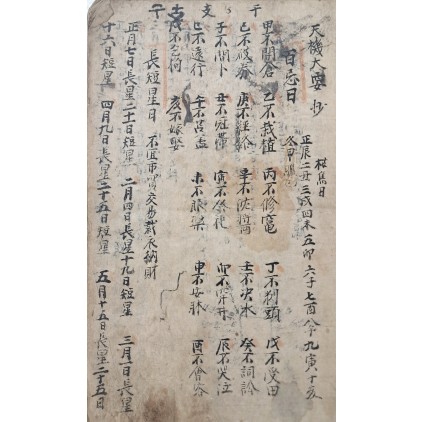 天機大要抄
正辰二丑三戌四未五卯六子七酉八午九寅十亥
百忌日
甲不開倉 乙不栽植 丙不修竈 丁不剃頭 戊不受田
己不破券 庚不經絡 辛不 壬不決水 癸不詞訟
子不問卜 丑不冠帶 寅不祭祀 卯不穿井 辰不哭泣
巳不遠行 午不苫盖 未不服藥 申不安牀 酉不會客
戌不乞狗 亥不嫁娶
長短星日 不宜市買交易裁衣納財
正月七日長星二十一日短星 二月四日長星十九日短星 三月一日長星
十六日短星 四月九日長星二十五日短星 五月十五日長星二十五日